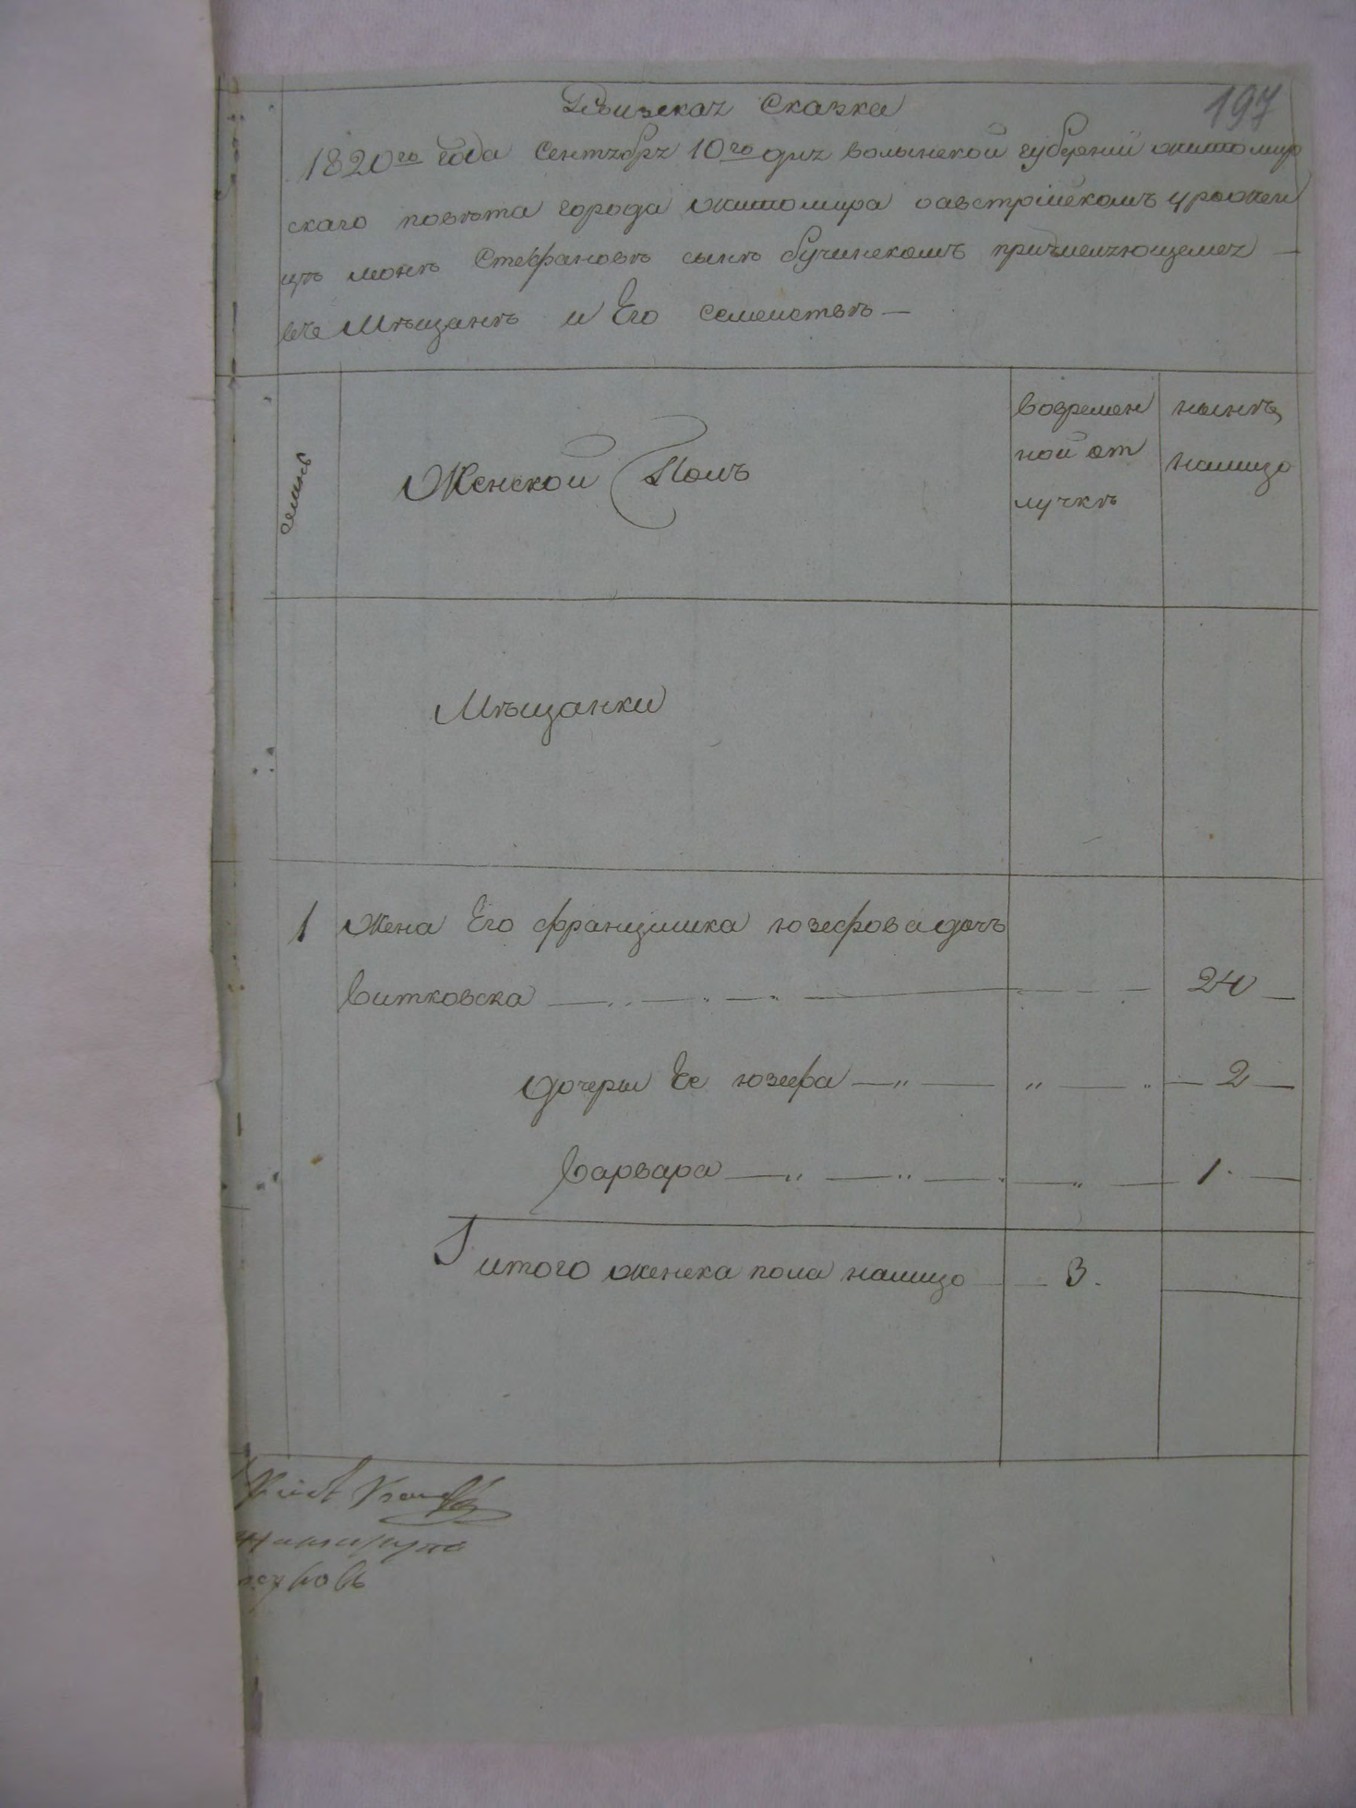 Ревизская Сказка
197
1820го года Сентября 10го дня волынской губернии житомир
скаго повѣта города житомира о австрійскомъ урожен
цѣ Стефановѣ сынѣ бучинскомъ причисляющемся —
в мѣщанѣ и Его семействѣ —
семьи
Женской Полъ
вовремен
ной от
лучкѣ
нынѣ
налицо
Мѣщанки
1 Жена Его францишка юзефова дочь
витковска — 24 —
дочери Ее юзефа — 2 —
варвара — 1. —
итого женска пола налицо — 3.